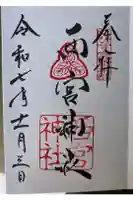 奉拝
西宮神社
西宮
神社
令和七年十一月三日